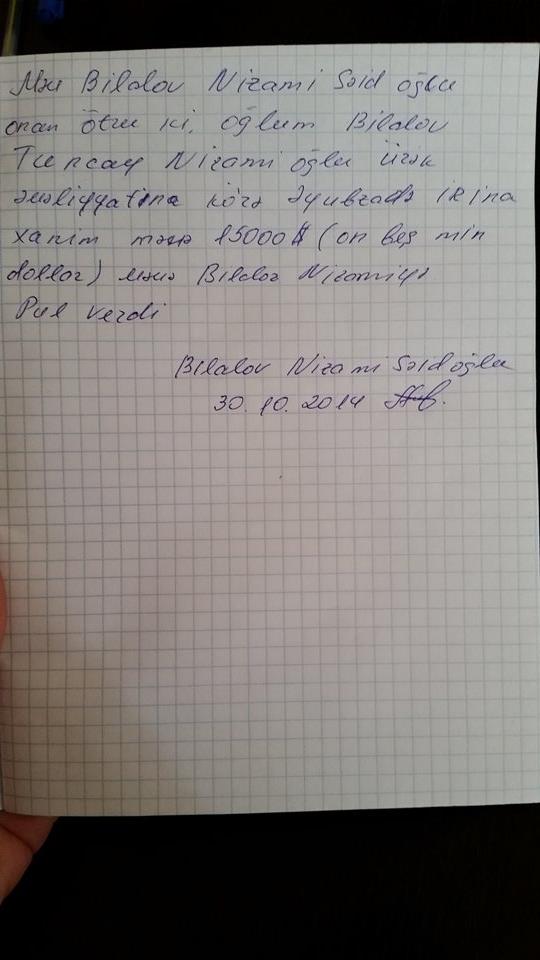 Mən Bilalov Nizami Səid oğlu
onan ötru ki, oğlum Bilalov
Tuncay Nizami oğlu ürək
əməliyyatına körə Əyubzadə İRina
xanım mənə 15000$ (on beş min
dollar) mənə Bilalov Nizamiyə
Pul verdi
Bilalov Nizami Səid oğlu
30.10.2014